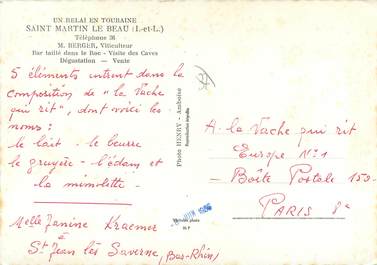 UN RELAI EN TOURAINE
SAINT MARTIN LE BEAU (I.-et-L.)
Téléphone 36
M. BERGER, Viticulteur
Bar taillé dans le Roc - Visite des Caves
Dégustation — Vente
5 éléments entrent dans la
composition de "la Vache
qui rit", dont voici les
noms:
le lait - le beurre
le gruyère - l'édam et
la mimolette -
Melle Janine Kraemer
à
St Jean lès Saverne, (Bas-Rhin)
Photo HENRY - Amboise
Reproduction interdite
A la Vache qui rit
Europe N°1
Boîte Postale 150 -
PARIS 8e